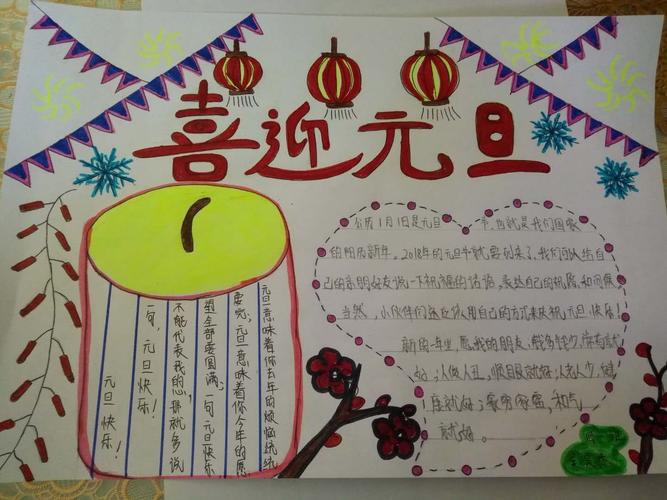 喜迎元旦
元旦意味着你去年的烦恼统统
要完,元旦意味着你今年的愿
望全部要圆满。一句元旦快乐
不能代表我的心,那就多说
一句,元旦快乐!
元旦快乐!
公历1月1日是元旦 节,也就是我们国家
的阳历新年,2018年的元旦节就要到来了,我们可以给自
己的亲朋好友说一下祝福的话语,表达自己的祝愿和问候
当然,小伙伴们还应该用自己的方式来庆祝元旦快乐!
新的一年里,愿我的朋友:钱多钱少,常有就
好;人俊人丑,顺眼就好;人老人少,健
康就好;家穷家富,和气
就好。